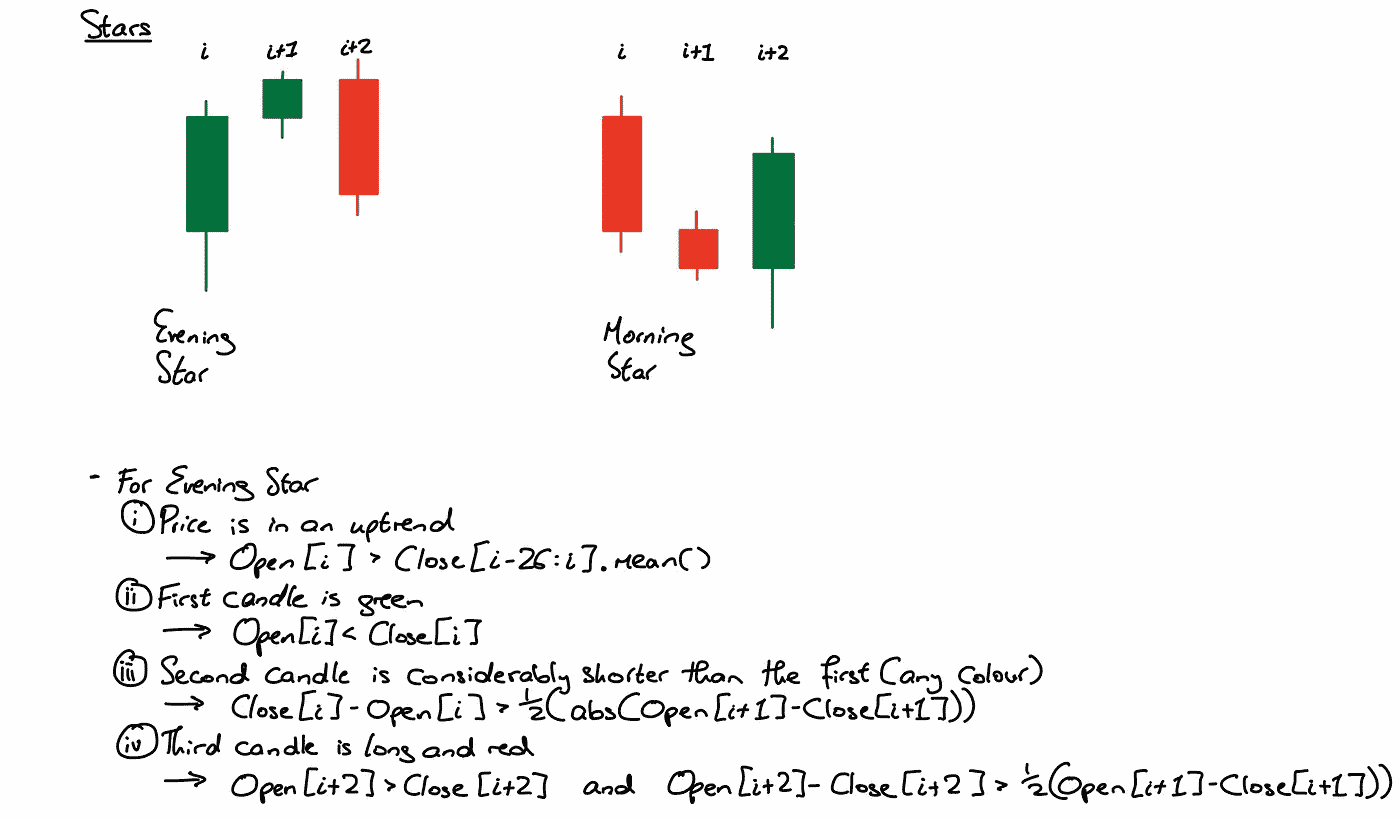 Stars
i i+1 i+2 i i+1 i+2
Evening
Star
Morning
Star
- For Evening Star
(i) Price is in an uptrend
→ Open[i] > Close[i-26:i].mean()
(ii) First candle is green
→ Open[i] < Close[i]
(iii) Second candle is considerably shorter than the first (any colour)
→ Close[i]-Open[i] > ½(abs(Open[i+1]-Close[i+1]))
(iv) Third candle is long and red
→ Open[i+2] > Close[i+2] and Open[i+2]-Close[i+2] > ½(Open[i+1]-Close[i+1]))